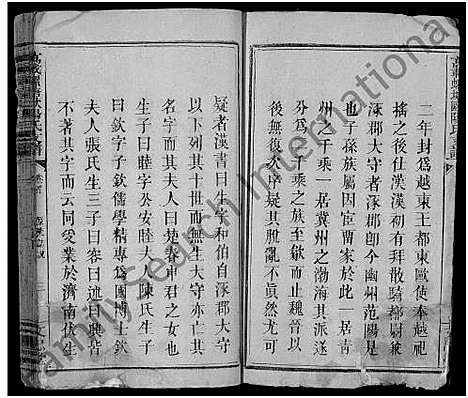 二年封爲越東王都東歐使奉越祀
搖之後仕漢漢初有拜散騎都尉兼
涿郡大守者涿郡卽今幽州范陽是
也子孫族屬因官兩家於此一居青
州之千乘一居冀州之渤海其派遂
分爲千乘之族至歙而止魏晉以
後無復次序疑其脫亂不眞然尤可
疑者漢書曰歙字和伯自涿郡大守
以下列其十世而無生大守亦亡其
名字而其夫人曰楚春申君之女也
生子曰睦字公安睦夫人陳氏生子
曰歙字子欽儒學精專爲國博士欽
夫人張氏生三子曰容曰述曰興皆
不著其字而云同受業於濟南伏生
Family Search International